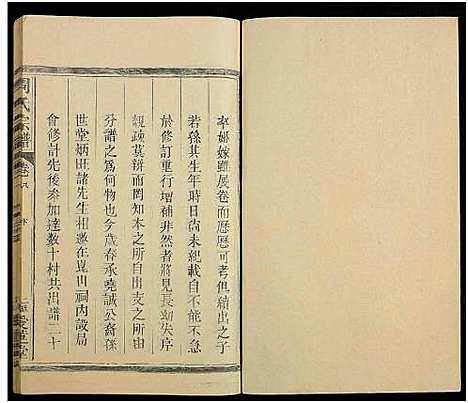 卒婚嫁雖展卷而歷歷可考但續出之子
若孫其生年時日尚未紀載自不能不急
於修訂重行增補非然者將見長幼失序
親疎莫辨而罔知本之所自出支之所由
分譜之為何物也今歲春承堯誠公裔孫
世堂炳旺諸先生相邀在崑山祠內設局
會修計先後參加達數十村共出譜二十
周氏宗譜